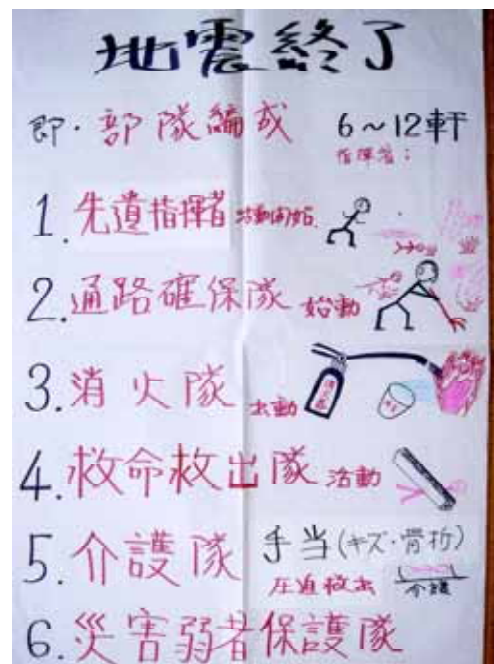 地震終了
即・部隊編成 6～12軒
指揮者；
1.先道指揮者 活動開始
2.通路確保隊 始動
3.消火隊 出動
消火器
4.救命救出隊 活動
5.介護隊 手当(キズ・骨折)
圧迫救出 介護
6.災害弱者保護隊